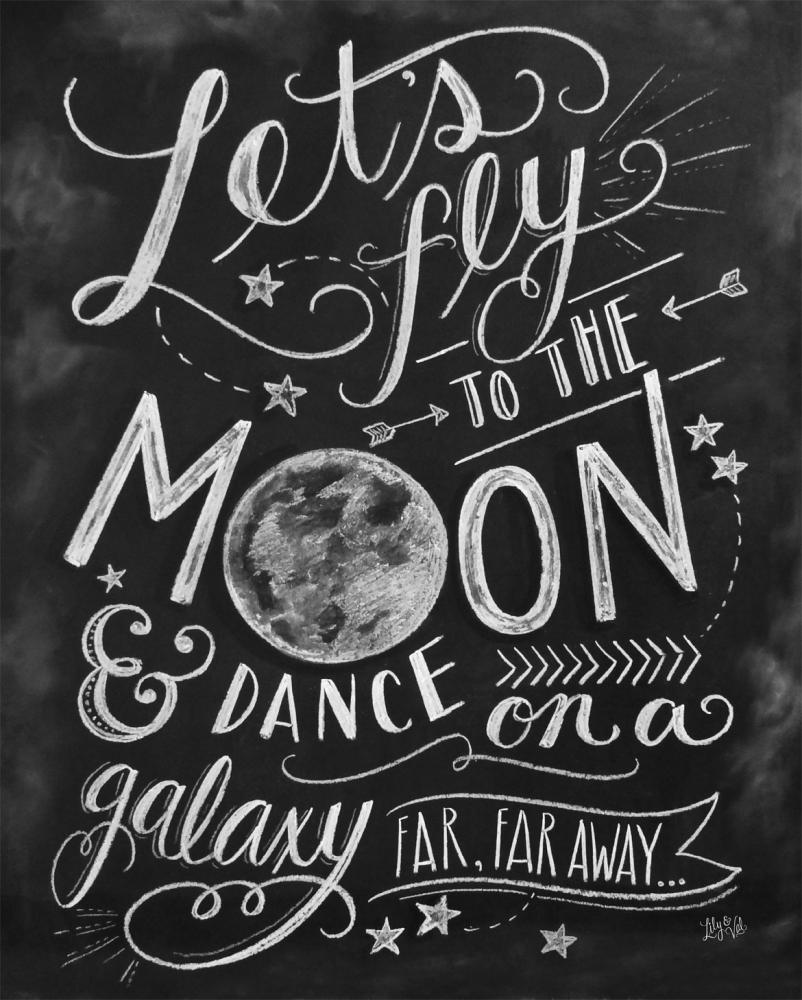 Let's
fly
TO THE
MOON
& DANCE on a
galaxy FAR, FAR AWAY...
Lily & Val